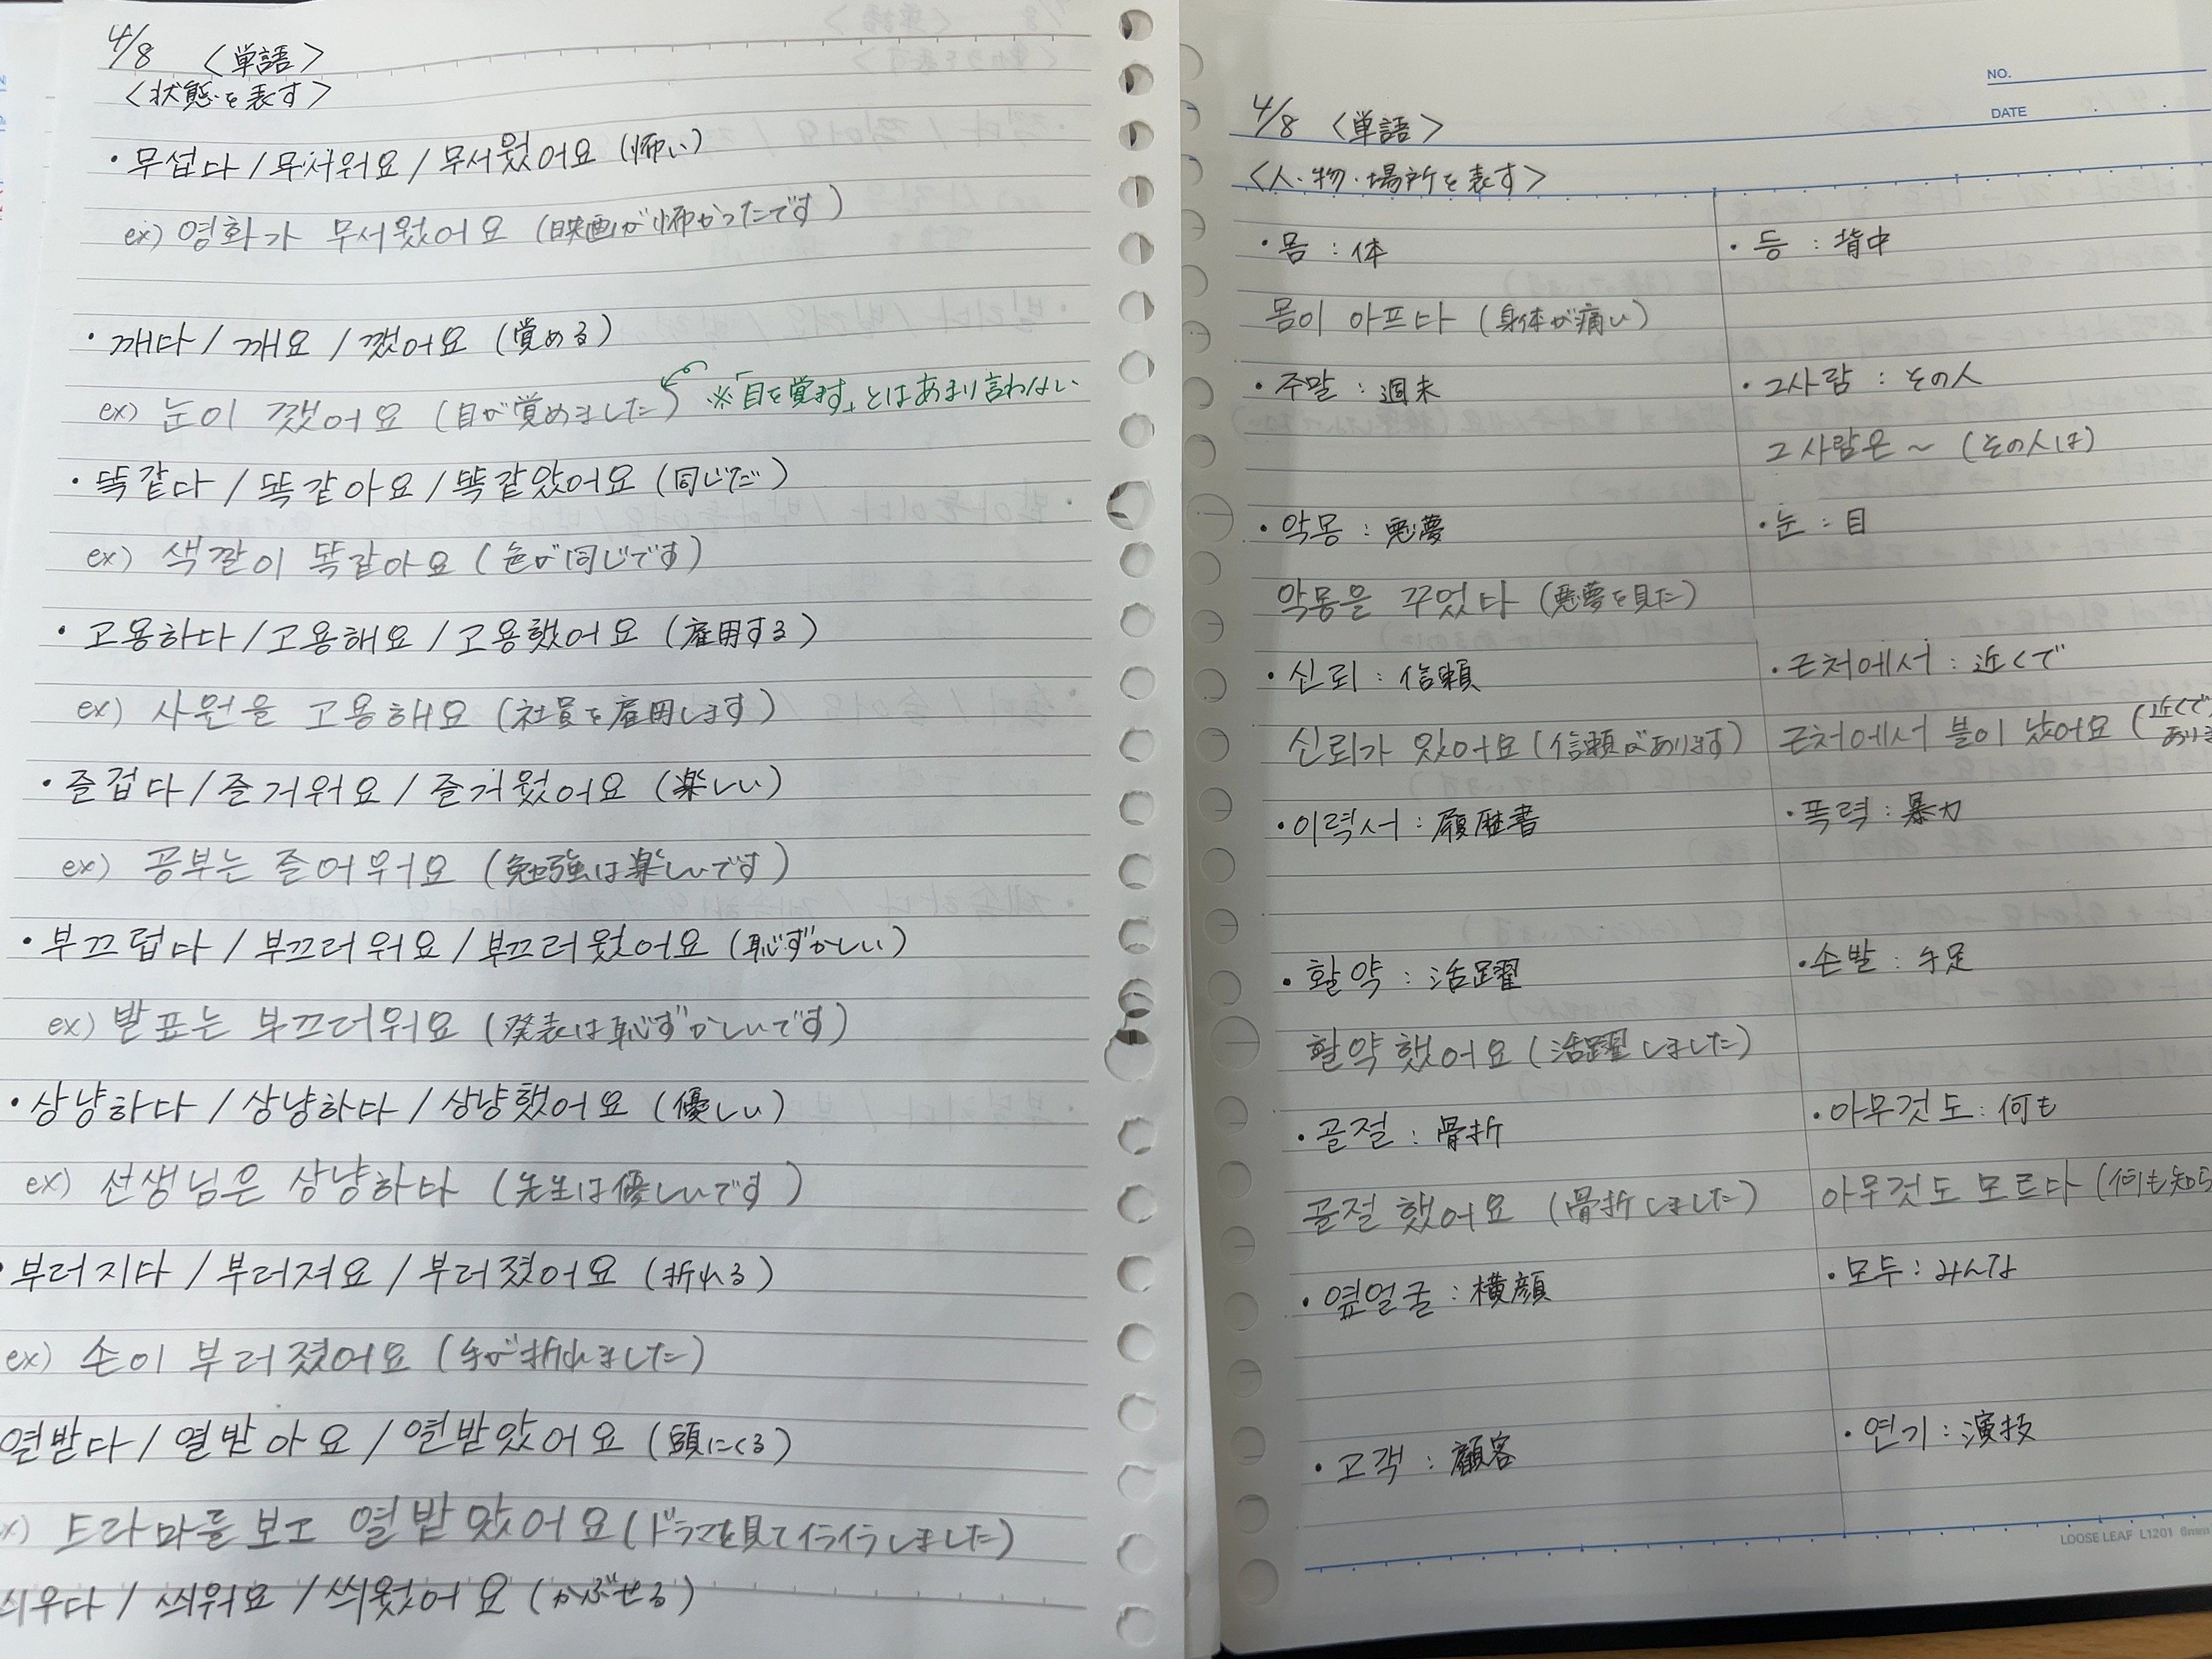 4/8 〈単語〉
〈状態を表す〉
・무섭다 / 무서워요 / 무서웠어요 (怖い)
ex) 영화가 무서웠어요 (映画が怖かったです)
・깨다 / 깨요 / 깼어요 (覚める)
ex) 눈이 깼어요 (目が覚めました) ※「目を覚ます」とはあまり言わない
・똑같다 / 똑같아요 / 똑같았어요 (同じだ)
ex) 색깔이 똑같아요 (色が同じです)
・고용하다 / 고용해요 / 고용했어요 (雇用する)
ex) 사원을 고용해요 (社員を雇用します)
・즐겁다 / 즐거워요 / 즐거웠어요 (楽しい)
ex) 공부는 즐어워요 (勉強は楽しいです)
・부끄럽다 / 부끄러워요 / 부끄러웠어요 (恥ずかしい)
ex) 발표는 부끄더워요 (発表は恥ずかしいです)
・상냥하다 / 상냥하다 / 상냥했어요 (優しい)
ex) 선생님은 상냥하다 (先生は優しいです)
・부러지다 / 부러져요 / 부러졌어요 (折れる)
ex) 손이 부러졌어요 (手が折れました)
열받다 / 열받아요 / 열받았어요 (頭にくる)
x) 트라마를 보고 열받았어요 (ドラマを見てイライラしました)
씌우다 / 씌워요 / 씌웠어요 (かぶせる)
NO.
DATE
4/8 〈単語〉
〈人・物・場所を表す〉
・몸 : 体
몸이 아프다 (身体が痛い)
・주말 : 週末
・악몽 : 悪夢
악몽을 꾸었다 (悪夢を見た)
・신뢰 : 信頼
신뢰가 있어요 (信頼があります)
・이력서 : 履歴書
・활약 : 活躍
활약했어요 (活躍しました)
・골절 : 骨折
골절했어요 (骨折しました)
・옆얼굴 : 横顔
・고객 : 顧客
・등 : 背中
・그사람 : その人
그 사람은 ~ (その人は)
・눈 : 目
・근처에서 : 近くで
근처에서 불이 났어요 (近くで
あり
・폭력 : 暴力
・손발 : 手足
・아무것도 : 何も
아무것도 모르다 (何も知ら
・모두 : みんな
・연기 : 演技
LOOSE LEAF L1201 6mm